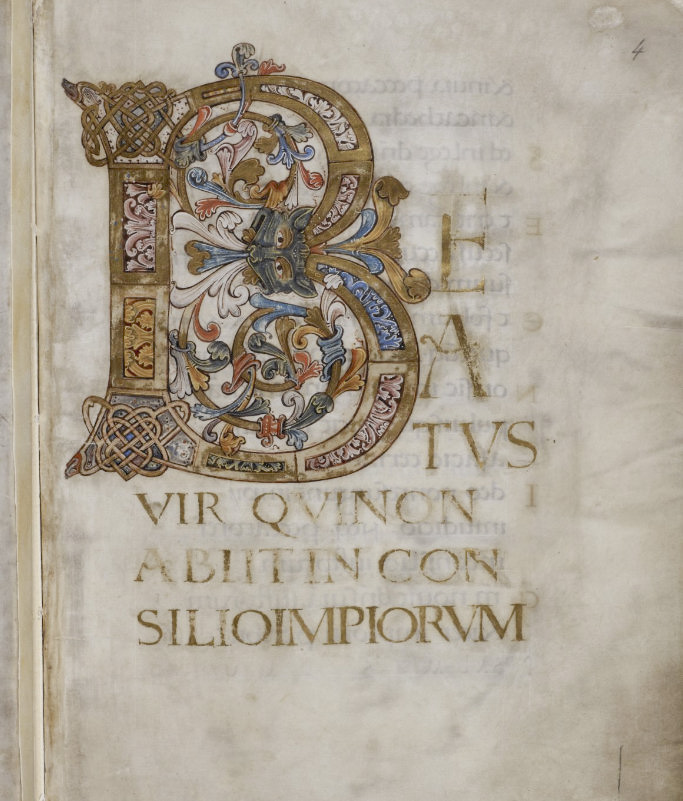 4
BE
A
TVS
VIR QVINON
ABIIT IN CON
SILIO IMPIORVM